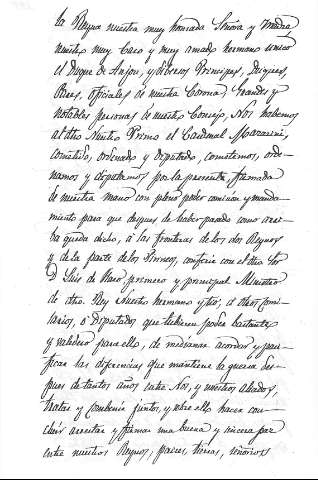 la Reyna nuestra muy honrada Señora y Madre
nuestro muy Caro y muy amado hermano unico
el Duque de Anjou, y diversos Principes, Duques,
Pares, oficiales de nuestra Corona, Grandes y
notables personas de nuestro Consejo, Nos habemos
al dho. Nuestro Primo el Cardenal Mazarini,
cometido, ordenado y Diputado, cometemos, orde-
namos y diputamos por la presente, firmada
de nuestra mano con pleno poder comision y manda-
miento para que despues de haber pasado como arri-
ba queda dicho, á las fronteras de los dos Reynos
y de la parte de los Pirineos, conferir con el dho. Sor
D. Luis de Haro, primero y principal Ministro
de dho. Rey Nuestro hermano y tio, ú otros Comi-
sarios, ó Diputados que tubieren poder bastante
y valedero para ello, de mediante acordar y paci-
ficar las diferencias que mantiene la guerra des-
pues de tantos años entre Nos, y nuestros Aliados,
tratar y Combenir juntos, y sobre ello hacer con-
cluir acceitar y firmar una buena y sincera paz
entre nuestros Reynos, paises, tierras, señorios